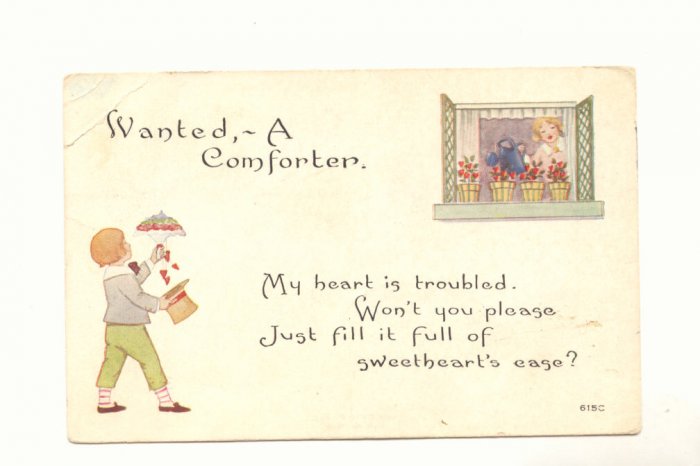 Wanted,~ A
Comforter.
My heart is troubled.
Won't you please
Just fill it full of
sweetheart's ease?
615C